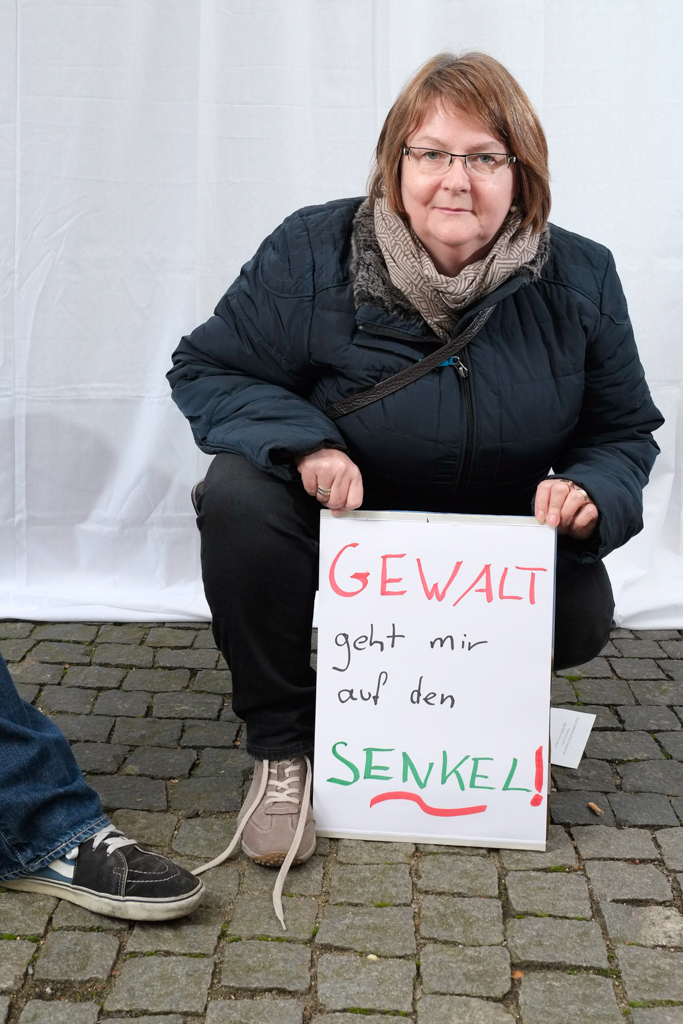 GEWALT
geht mir
auf den
SENKEL!